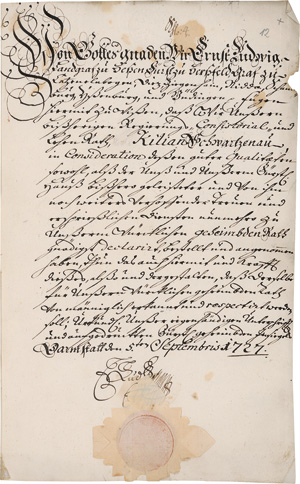 Von Gottes gnaden Wir Ernst Ludwig,
Landgraf zu Heßen, Fürst zu Herßfeld, Graf zu
Catzenelnbogen, Dietz, Ziegenhain, Nidda, Scha-
umburg, Ysenburg und Büdingen, fügen
hiermit zu wißen, daß Wir Unßern
bißherigen Regierungs-, Consistorial- und
Lehen Rath, Kilian Schwartzenau
in Consideration deßen guter Qualitaeten
sowohl, alß der Unß und Unßerm Fürstl.
Hauß bißhero geleisteter und von ihm
noch ferner verhoffender treuen und
ersprießlichen Diensten nunmehr zu
Unßerm Würcklichen geheimbden Rath
gnädigst declarirt, bestellt und angenommen
haben, Thun das auch hiermit und Krafft
dießes, alß und dergestalten, daß derselbe
für Unßern Würcklichen geheimbden Rath
von männiglich erkannt und respectirt werden
soll; Urkundlich Unßerer eigenhändigen Unterschrifft
und angedruckten Fürstl. geheimbden Insiegels
Darmstatt den 5ten Septembris 1727.